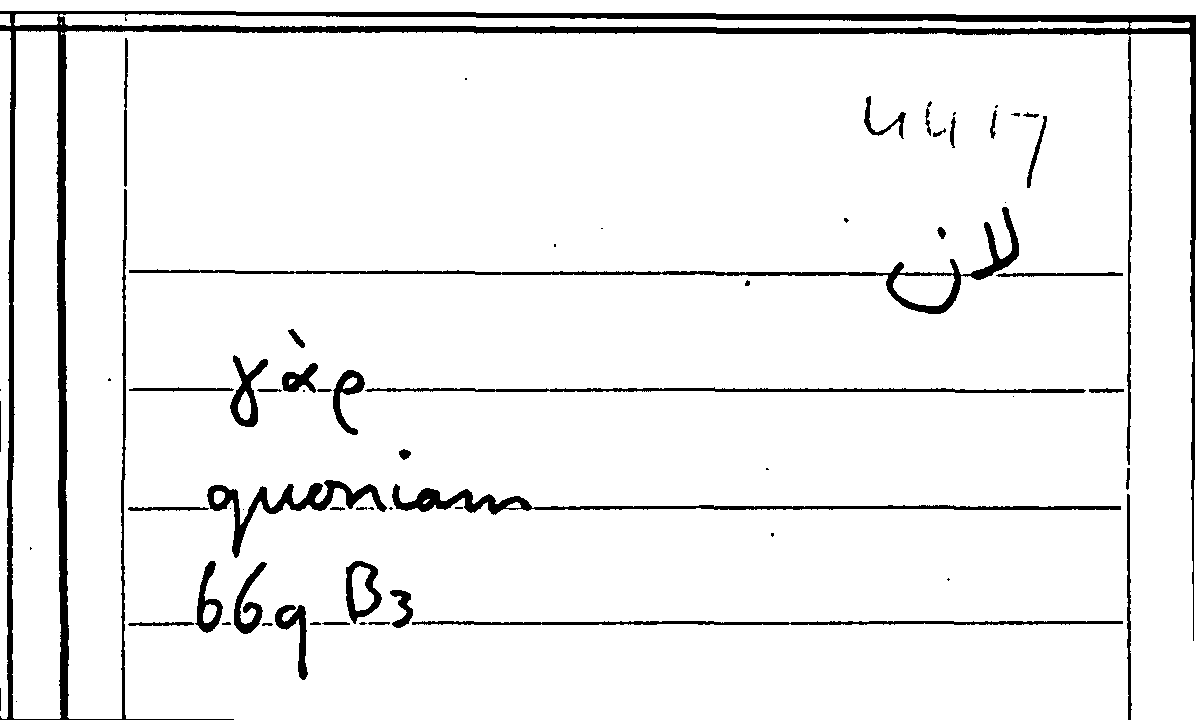 4417
لان
γὰρ
quoniam
669 B3